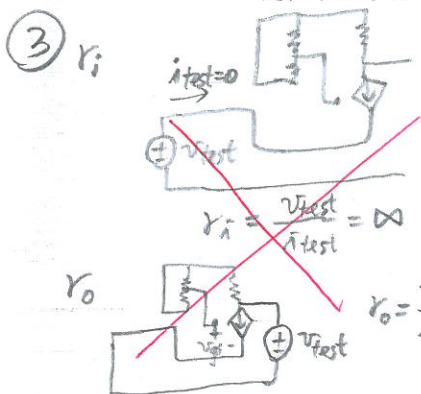 ③ rᵢ
i test=0
v test
rᵢ = v test / i test = ∞
r₀
r₀ =
v test